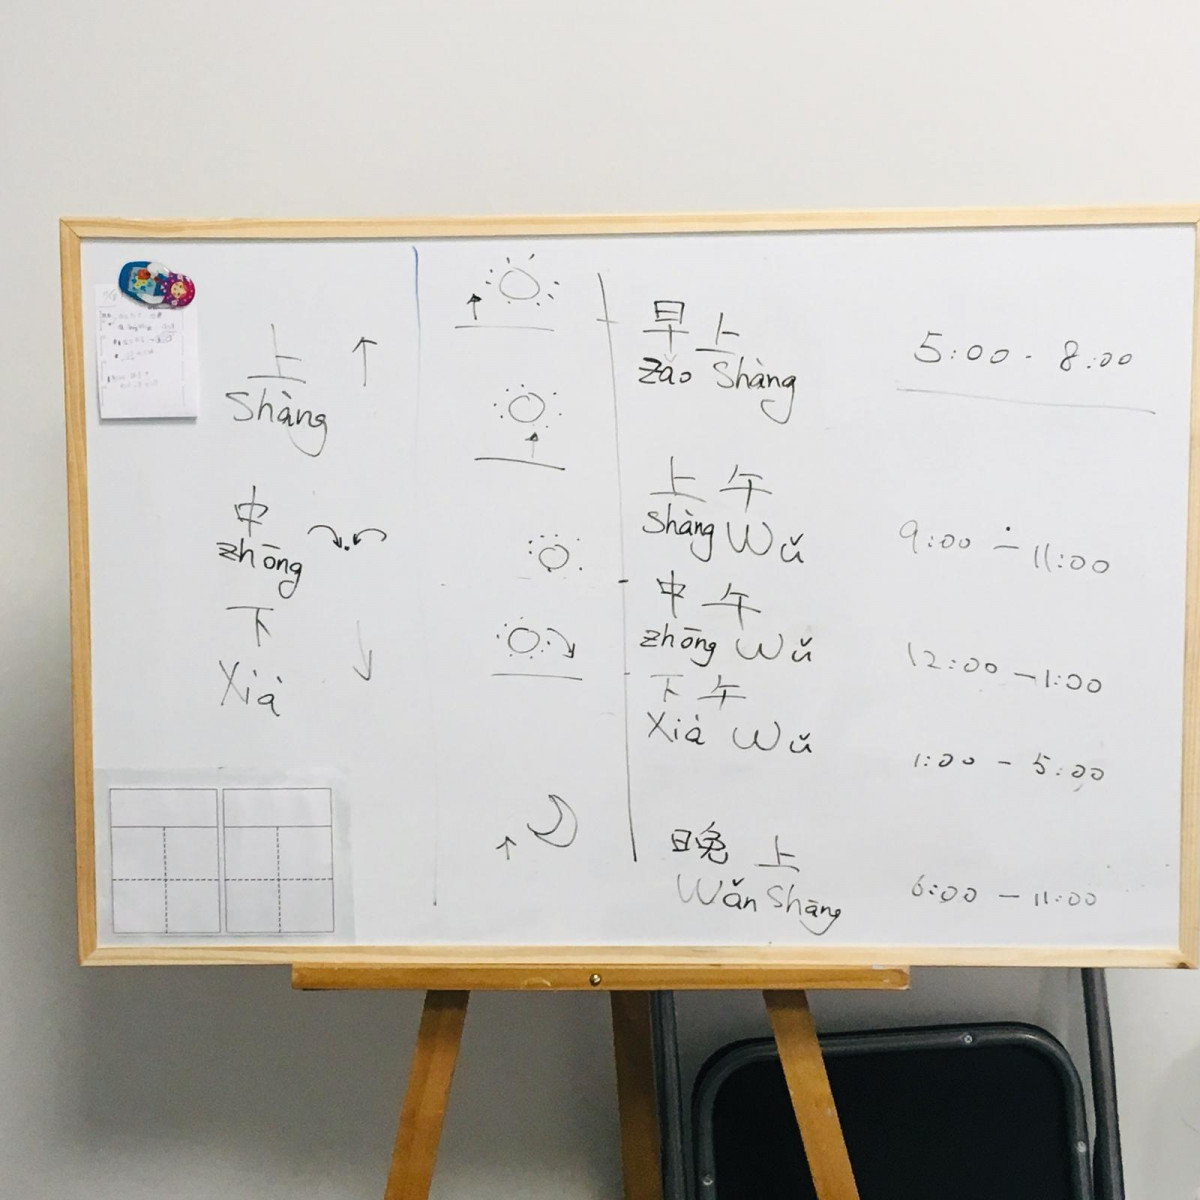 上
Shàng
中
zhōng
下
Xià
早上
zǎo Shàng
5:00 - 8:00
上午
Shàng Wǔ
9:00 - 11:00
中午
zhōng Wǔ
12:00 - 1:00
下午
Xià Wǔ
1:00 - 5:00
晚上
Wǎn Shāng
6:00 - 11:00